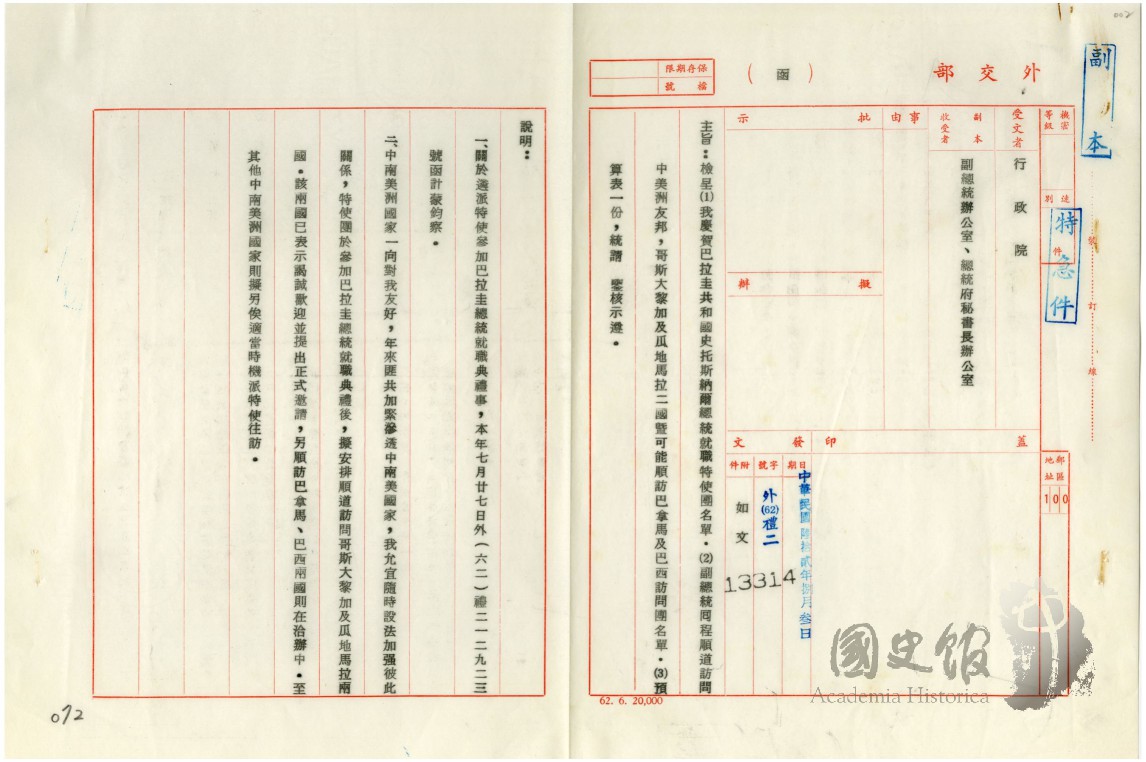 002
副本
外交部
（函）
保存期限
檔號
機密等級
速別
特急件
號……訂……埠
受文者
行政院
副本收受者
副總統辦公室、總統府秘書長辦公室
事由
批示
擬辦
蓋印發文
日期
中華民國陸拾貳年捌月叁日
字號
外(62)禮二
13314
附件
如文
郵區地址
100
主旨：檢呈⑴我慶賀巴拉圭共和國史托斯納爾總統就職特使團名單。⑵副總統同程順道訪問
中美洲友邦，哥斯大黎加及瓜地馬拉二國暨可能順訪巴拿馬及巴西訪問團名單。⑶預
算表一份，統請　鑒核示遵。
62. 6. 20,000
說明：
一、關於遴派特使參加巴拉圭總統就職典禮事，本年七月廿七日外（六二）禮二一二九二三
號函計蒙鈞察。
二、中南美洲國家一向對我友好，年來匪共加緊滲透中南美國家，我允宜隨時設法加强彼此
關係，特使團於參加巴拉圭總統就職典禮後，擬安排順道訪問哥斯大黎加及瓜地馬拉兩
國。該兩國已表示竭誠歡迎並提出正式邀請，另順訪巴拿馬、巴西兩國則在洽辦中。至
其他中南美洲國家則擬另俟適當時機派特使往訪。
072
國史館
Academia Historica